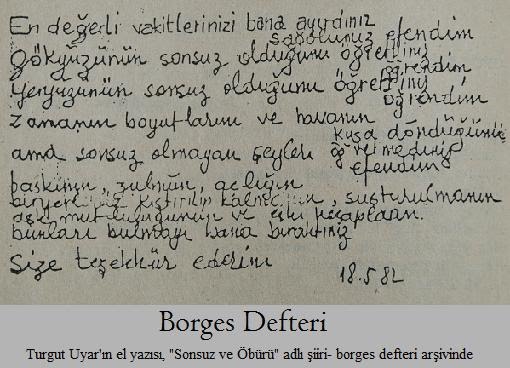 En değerli vakitlerinizi bana ayırdınız
sağolunuz efendim
Gökyüzünün sonsuz olduğunu öğrettiniz
öğrendim
Yeryüzünün sonsuz olduğunu öğrettiniz
öğrendim
Zamanın boyutlarını ve havanın
kuşa döndüğünü
ama sonsuz olmayan şeyleri öğretmediniz
efendim
baskının, zulmün, açlığın
kıstırılıp kalmanın, susturulmanın
aşk mutluluğunun ve eski hesapların.
bunları bulmayı bana bıraktınız
size teşekkür ederim
18.5.82
Borges Defteri
Turgut Uyar'ın el yazısı, "Sonsuz ve Öbürü" adlı şiiri- borges defteri arşivinde